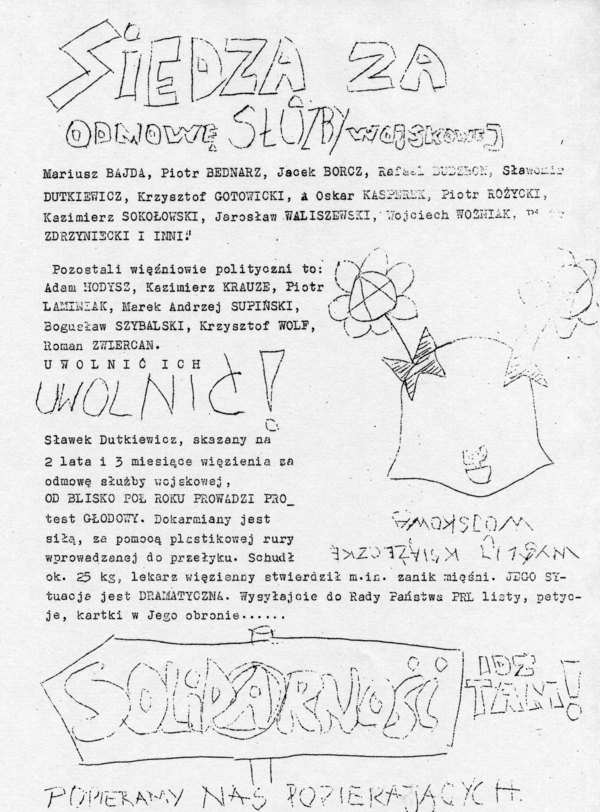 SIEDZA ZA
ODMOWĘ SŁUŻBY WOJSKOWEJ
Mariusz BAJDA, Piotr BEDNARZ, Jacek BORCZ, Rafael Sławomir
DUTKIEWICZ, Krzysztof GOTOWICKI, A Oskar KASPEREK, Piotr ROŻYCKI,
Kazimierz SOKOŁOWSKI, Jarosław WALISZEWSKI, Wojciech WOŹNIAK,
ZDRZYNIECKI I INNI!
Pozostali więźniowie polityczni to:
Adam HODYSZ, Kazimierz KRAUZE, Piotr
LAMINIAK, Marek Andrzej SUPIŃSKI,
Bogusław SZYBALSKI, Krzysztof WOLF,
Roman ZWIERCAN.
UWOLNIĆ ICH
UWOLNIĆ!
Sławek Dutkiewicz, skazany na
2 lata i 3 miesiące więzienia za
odmowę służby wojskowej,
OD BLISKO POŁ ROKU PROWADZI PRO_
test GŁODOWY. Dokarmiany jest
siłą, za pomocą plastikowej rury
wprowadzanej do przełyku. Schudł
ok. 25 kg, lekarz więzienny stwierdził m.in. zanik mięśni. JEGO SY-
tuacja jest DRAMATYCZNA. Wysyłajcie do Rady Państwa PRL listy, petyc-
je, kartki w Jego obronie......
WYŚLIJ KSIĄŻECZKĘ
WOJSKOWĄ
SOLIDARNOŚĆ
IDŹ
TAM!
POPIERAMY NAS POPIERAJĄCYCH